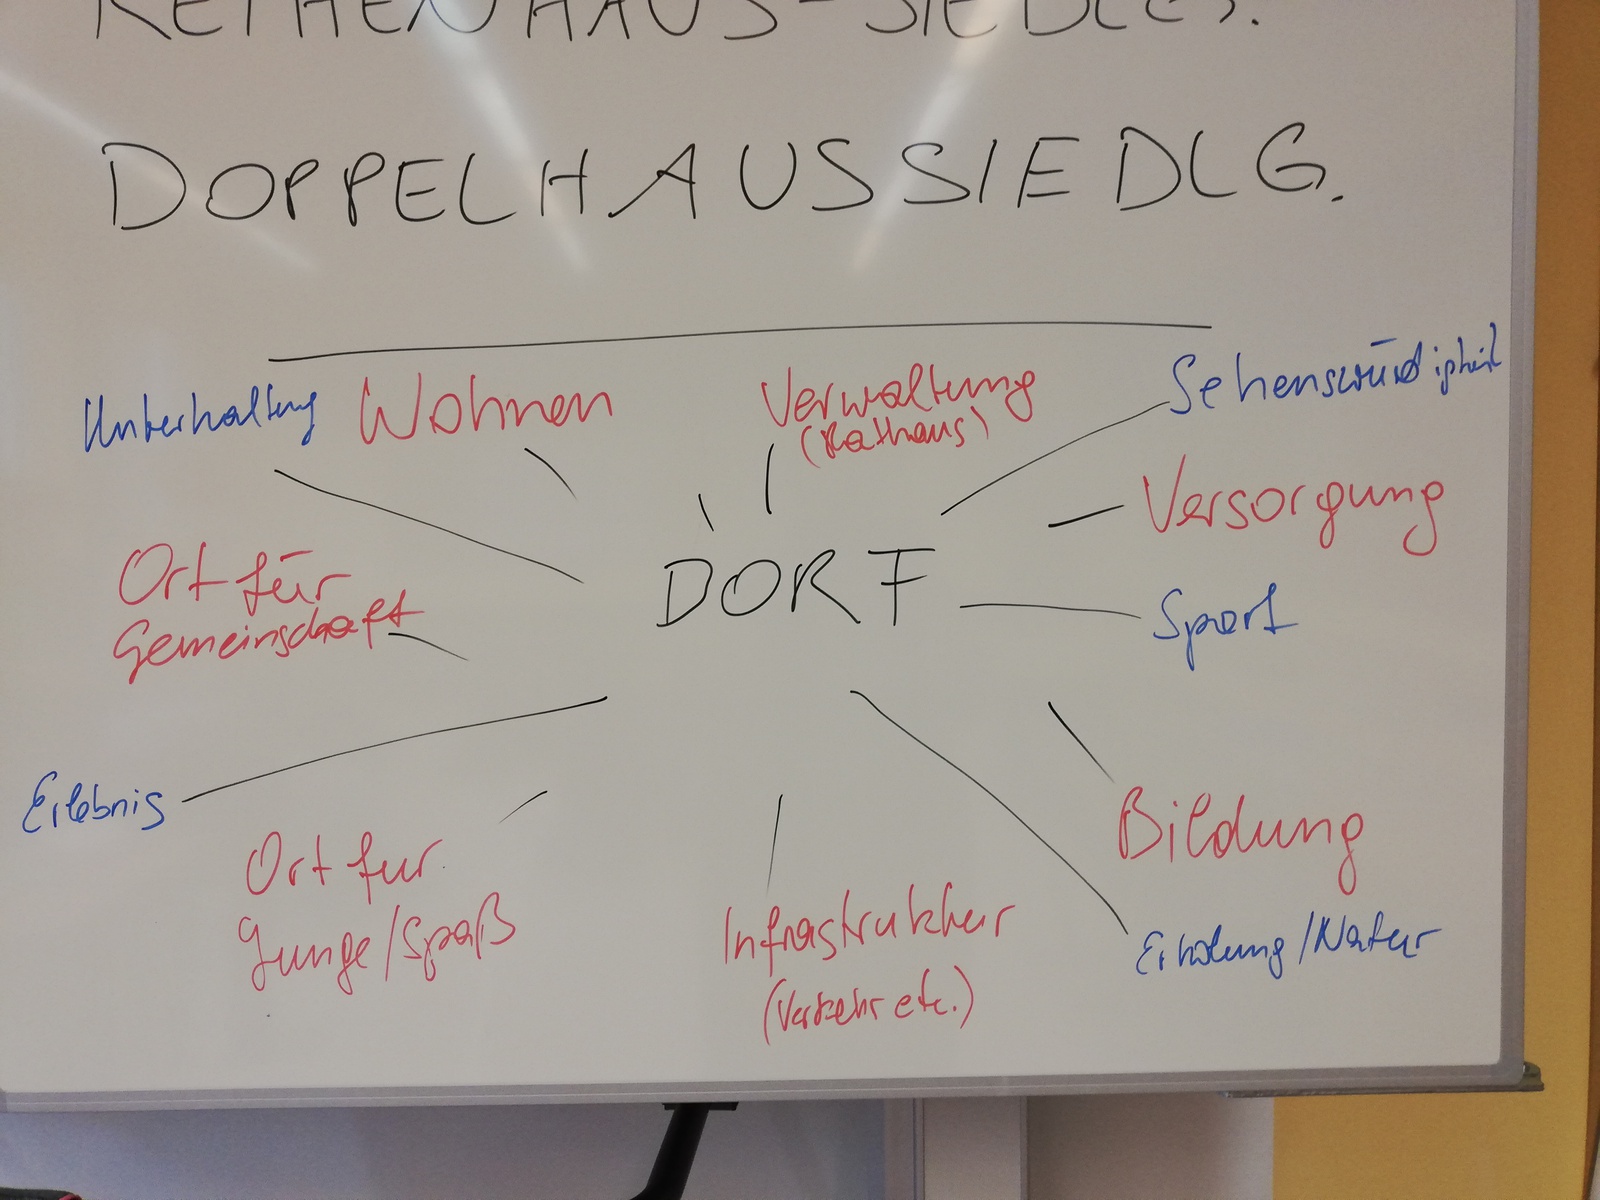 REIHENHAUS-SIEDLG.
DOPPELHAUSSIEDLG.
Unterhaltung
Wohnen
Verwaltung
(Rathaus)
Sehenswürdigkeit
Versorgung
Ort für
Gemeinschaft
DORF
Sport
Erlebnis
Ort fur
Junge/Spaß
Infrastruktur
(Verkehr etc.)
Bildung
Erholung/Natur